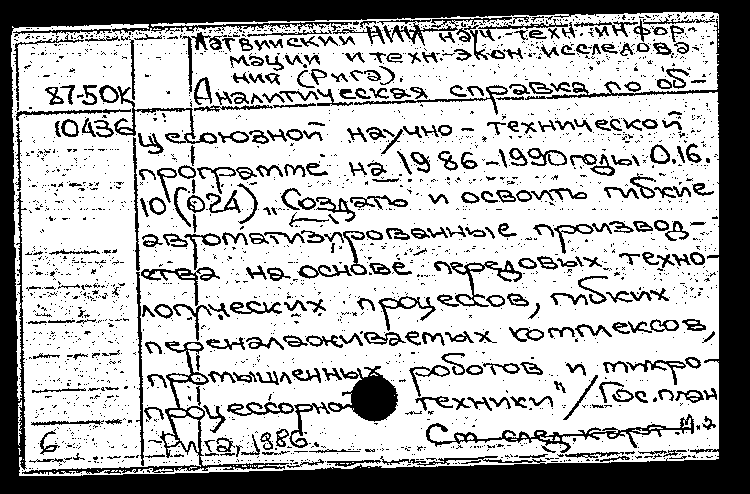 Латвийский НИИ науч.-техн. инфор-
мации и техн.-экон. исследова-
ний (Рига).
87-50К Аналитическая справка по об-
10436 щесоюзной научно-технической
программе на 1986-1990 годы 0.16.
10(024) „Создать и освоить гибкие
автоматизированные производ-
ства на основе передовых техно-
логических процессов, гибких
переналаживаемых комплексов,
промышленных роботов и микро-
процессорной техники"/Гос.план
6 Рига, 1986. См след карт.